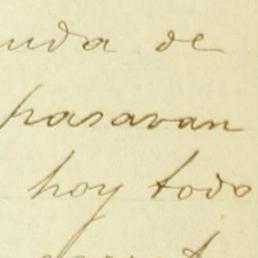 uda de
pasavan
hoy todo